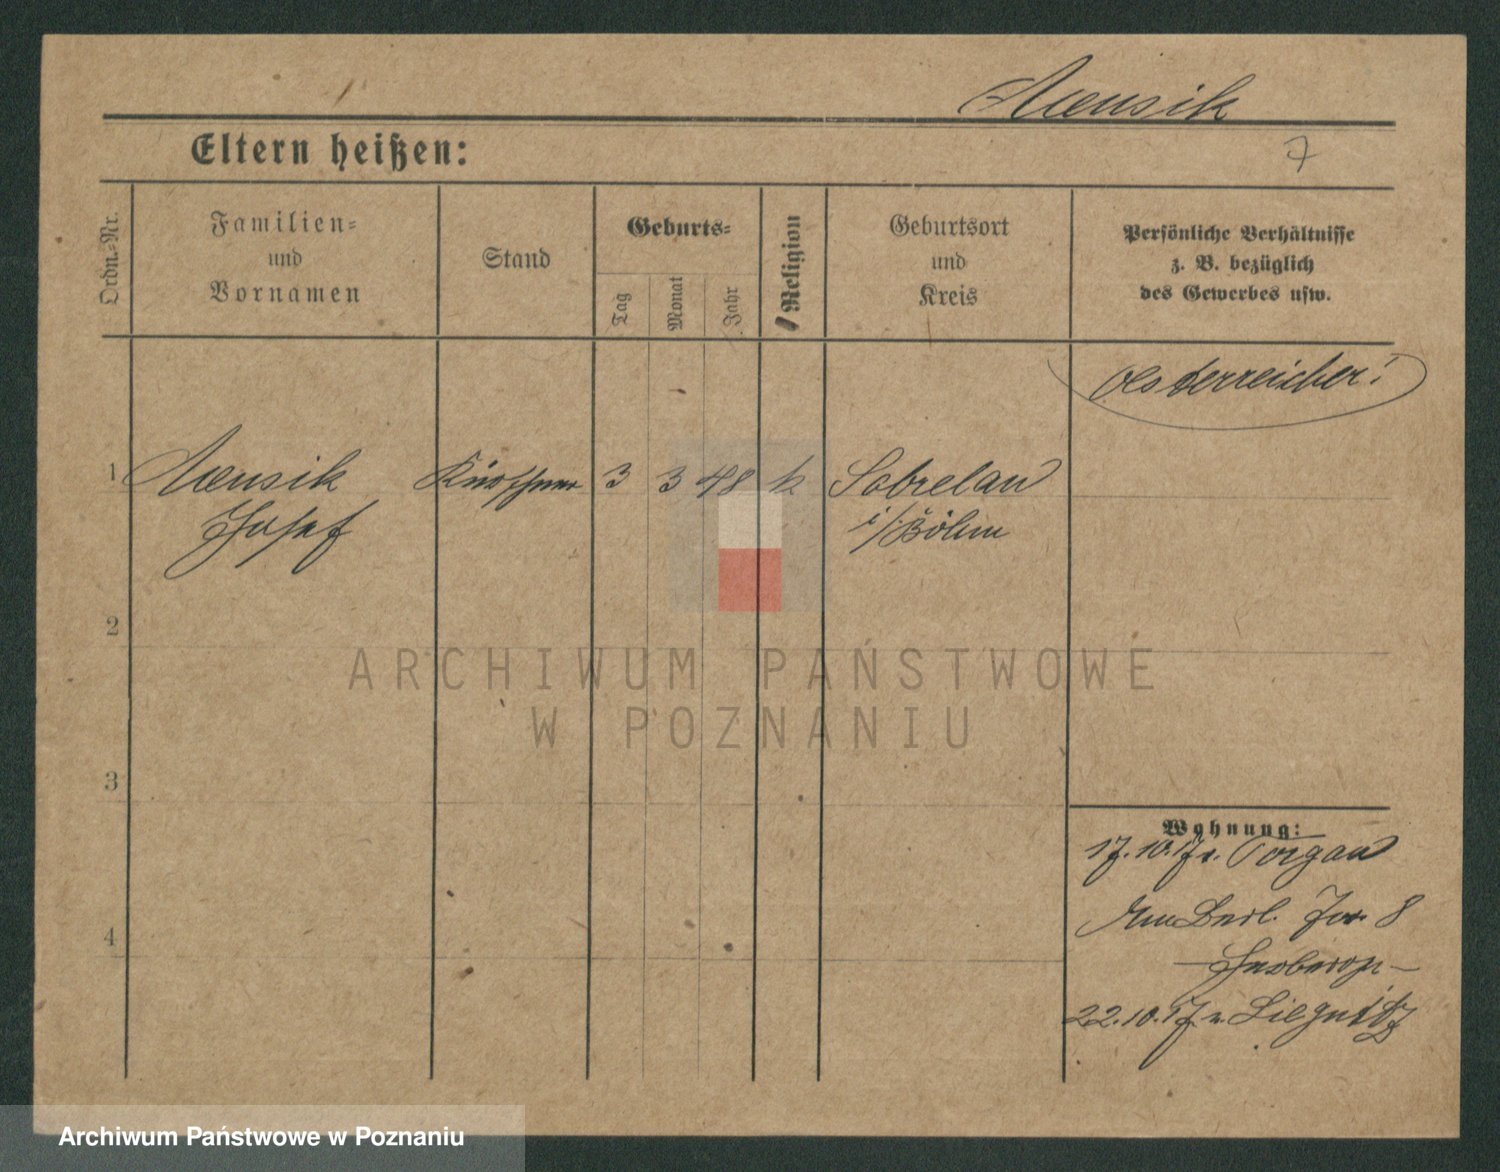 Mensik
Eltern heißen:
7
Ordn.-Nr.
Familien-
und
Vornamen
Stand
Geburts-
Tag
Monat
Jahr
Religion
Geburtsort
und
Kreis
Persönliche Verhältnisse
z. B. bezüglich
des Gewerbes usw.
Oesterreicher!
1
Mensik
Kürschner
3
3
48
k
Sobrelau
Josef
i/Böhm
2
ARCHIWUM PAŃSTWOWE
W POZNANIU
3
Wohnung:
17.10.17 v. Torgau
Berl. 8
4
Herberge
22.10.17 n. Liegnitz
Archiwum Państwowe w Poznaniu